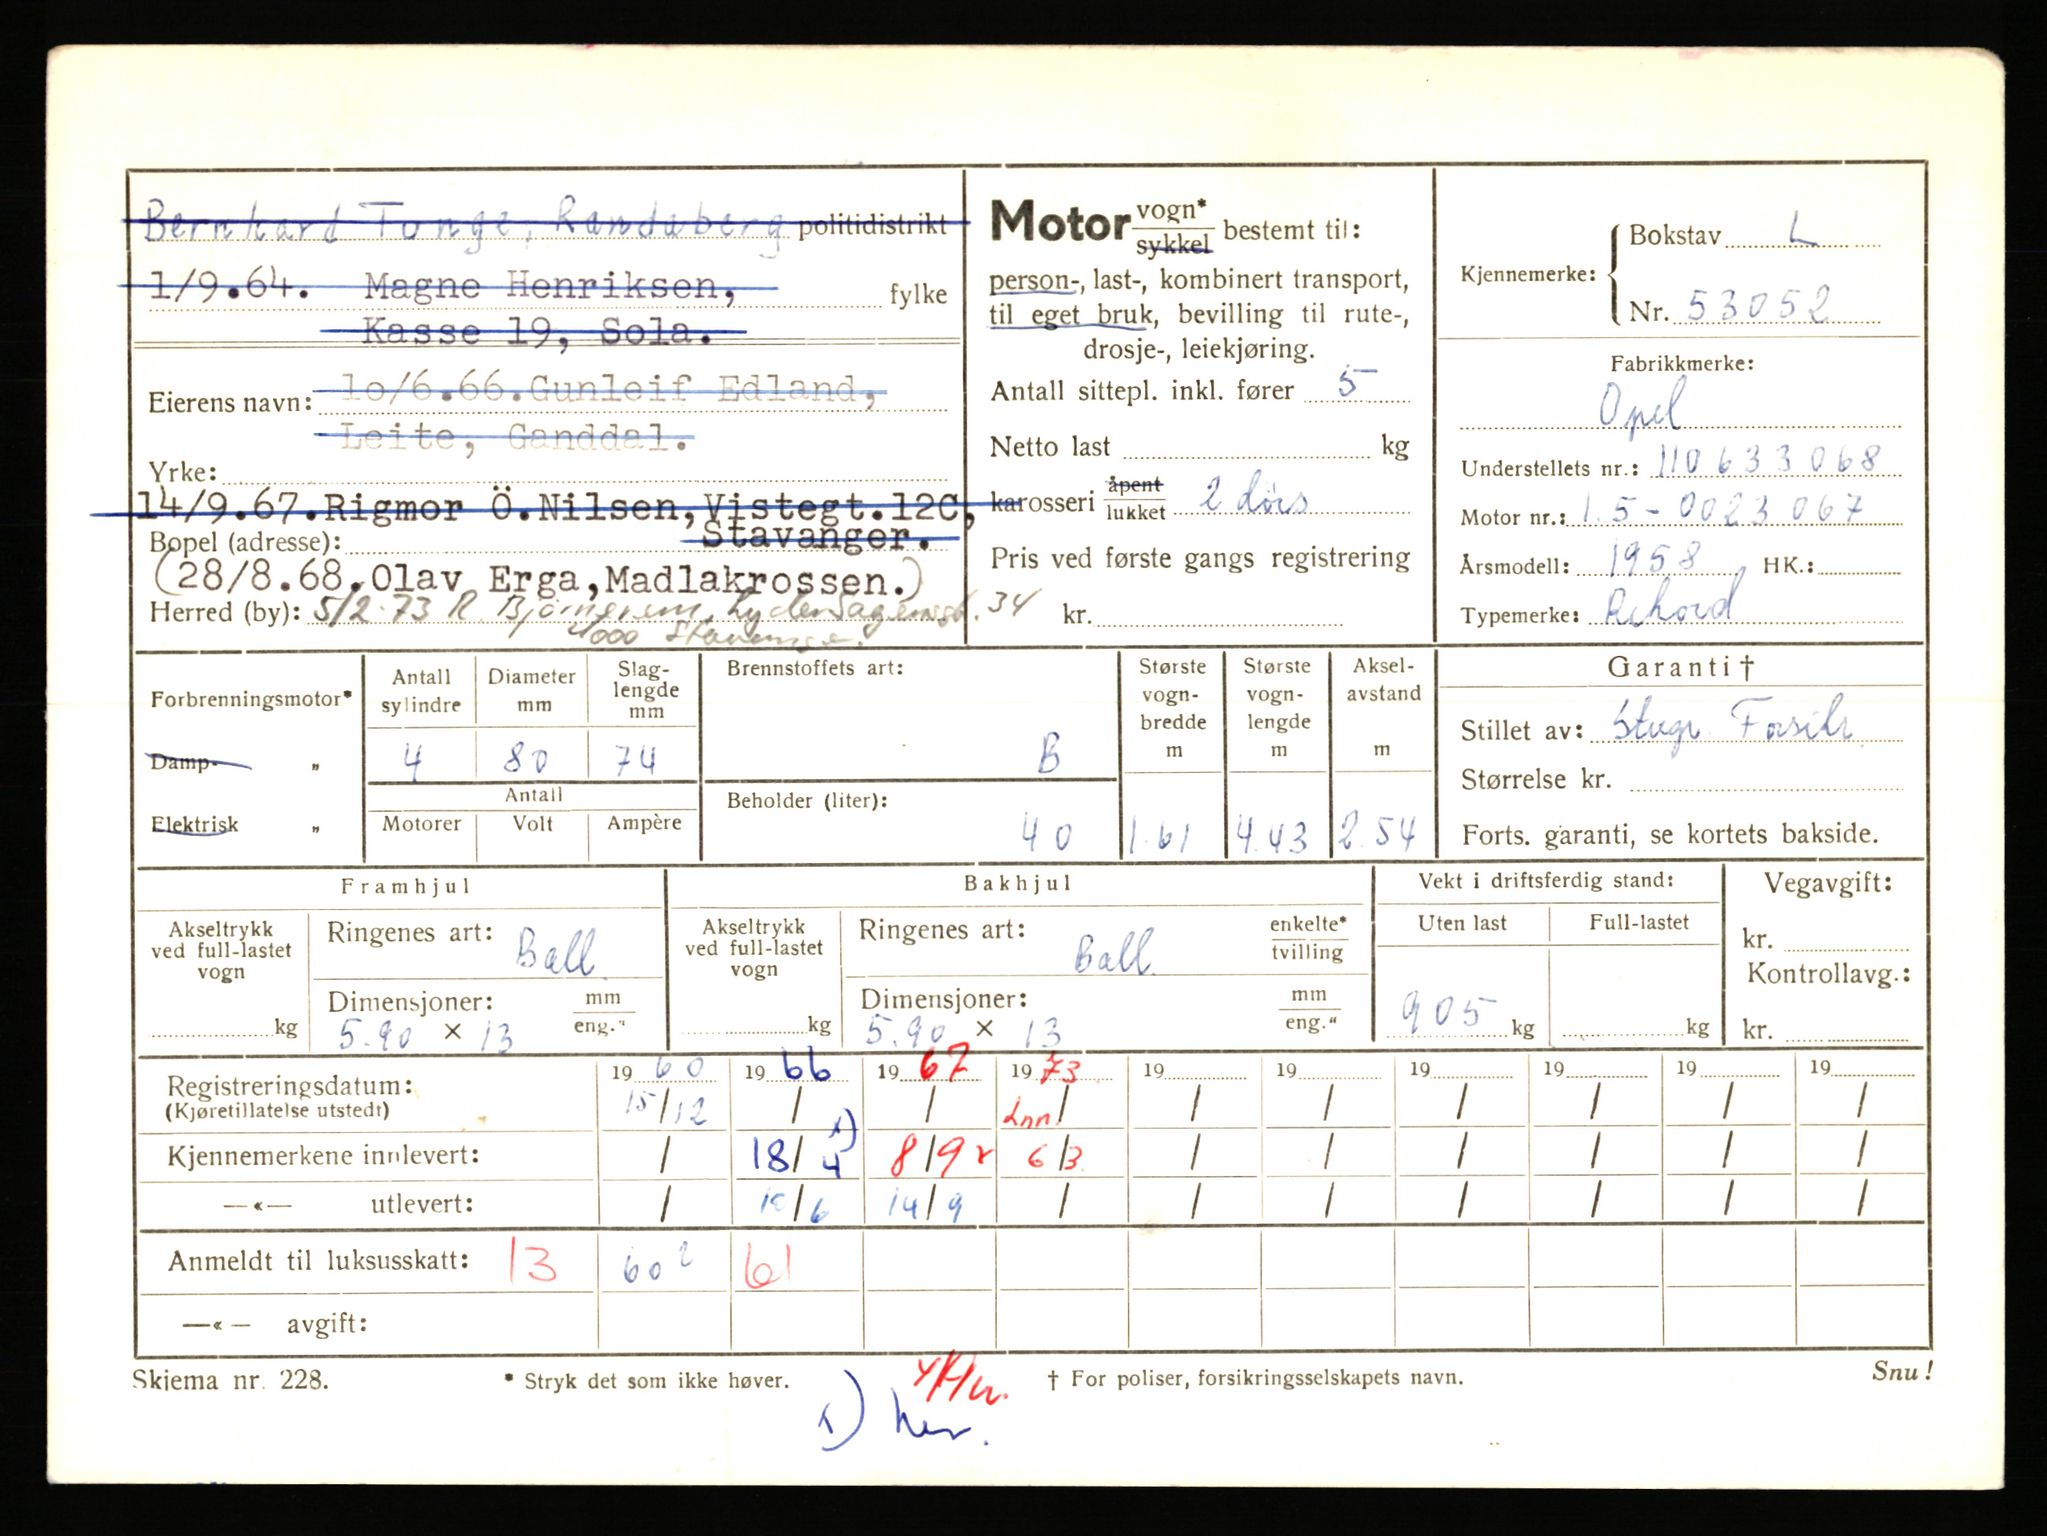 Bernhard Tunge, Randaberg politidistrikt
1/9.64. Magne Henriksen, fylke
Kasse 19, Sola.
Eierens navn: 1o/6.66.Gunleif Edland,
Leite, Ganddal.
Yrke:
14/9.67.Rigmor Ö.Nilsen,Vistegt.12C,
Stavanger.
Bopel (adresse):
(28/8.68.Olav Erga,Madlakrossen.)
Herred (by): 5/2-73 R. 34
4000 Stavanger.
Motor vogn*
sykkel bestemt til:
person-, last-, kombinert transport,
til eget bruk, bevilling til rute-,
drosje-, leiekjøring.
Antall sittepl. inkl. fører 5
Netto last kg
karosseri åpent
lukket 2 dørs
Pris ved første gangs registrering
kr.
Kjennemerke: Bokstav L
Nr. 53052
Fabrikkmerke:
Opel
Understellets nr.: 110633068
Motor nr.: 1.5-0023067
Årsmodell: 1958 HK.:
Typemerke: Rekord
Forbrenningsmotor*
Damp- „
Elektrisk „
Antall sylindre
4
Diameter mm
80
Slag-lengde mm
74
Antall
Motorer Volt Ampère
Brennstoffets art:
B
Beholder (liter):
40
Største vogn-bredde m
1.61
Største vogn-lengde m
4.43
Aksel-avstand m
2.54
Garanti †
Stillet av: Stvgr. Forsikr.
Størrelse kr.
Forts. garanti, se kortets bakside.
Framhjul
Akseltrykk ved full-lastet vogn
kg
Ringenes art: Ball
Dimensjoner: mm
eng."
5.90 × 13
Bakhjul
Akseltrykk ved full-lastet vogn
kg
Ringenes art: Ball enkelte*
tvilling
Dimensjoner: mm
eng."
5.90 × 13
Vekt i driftsferdig stand:
Uten last Full-lastet
905 kg kg
Vegavgift:
kr.
Kontrollavg.:
kr.
1960 1966 1967 1973 19 19 19 19 19 19
Registreringsdatum: 15/12 / / / / / / / / /
(Kjøretillatelse utstedt) Inn
Kjennemerkene innlevert: / 18/4 1) 8/9 6/3 / / / / / /
—«— utlevert: / 10/6 14/9 / / / / / / /
Anmeldt til luksusskatt: 13 60 2 61
—«— avgift:
Skjema nr. 228. * Stryk det som ikke høver. † For poliser, forsikringsselskapets navn. Snu!
1)